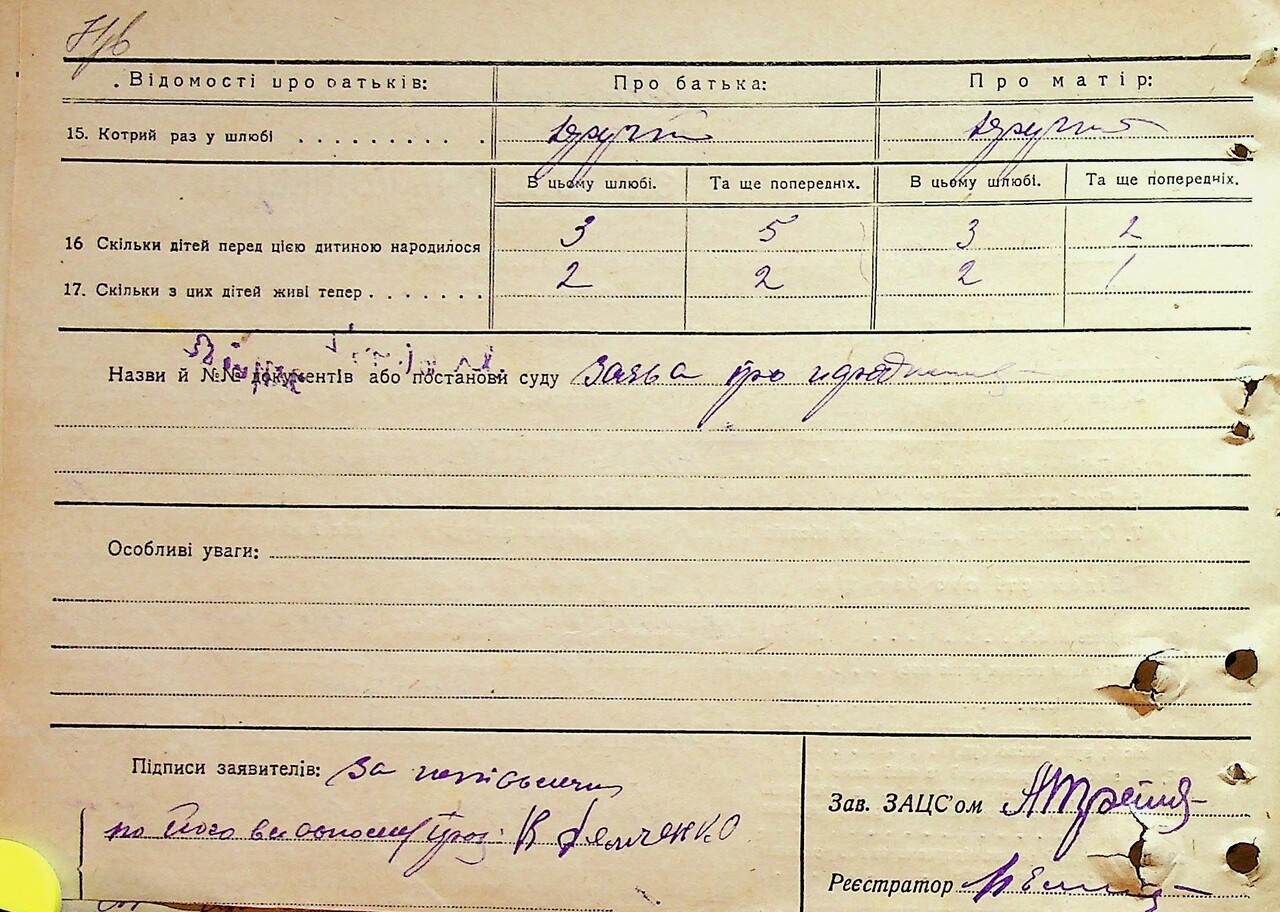 Відомості про батьків: Про батька: Про матір:
15. Котрий раз у шлюбі . . . . . . . . . . другий другий
В цьому шлюбі. Та ще попередніх. В цьому шлюбі. Та ще попередніх.
16 Скільки дітей перед цією дитиною народилося 3 5 3 2
17. Скільки з цих дітей живі тепер . . . . . . . 2 2 2 1
Назви й №№ документів або постанови суду заява про
Особливі уваги:
Підписи заявителів: за
по його
Зав. ЗАЦС'ом
Реєстратор